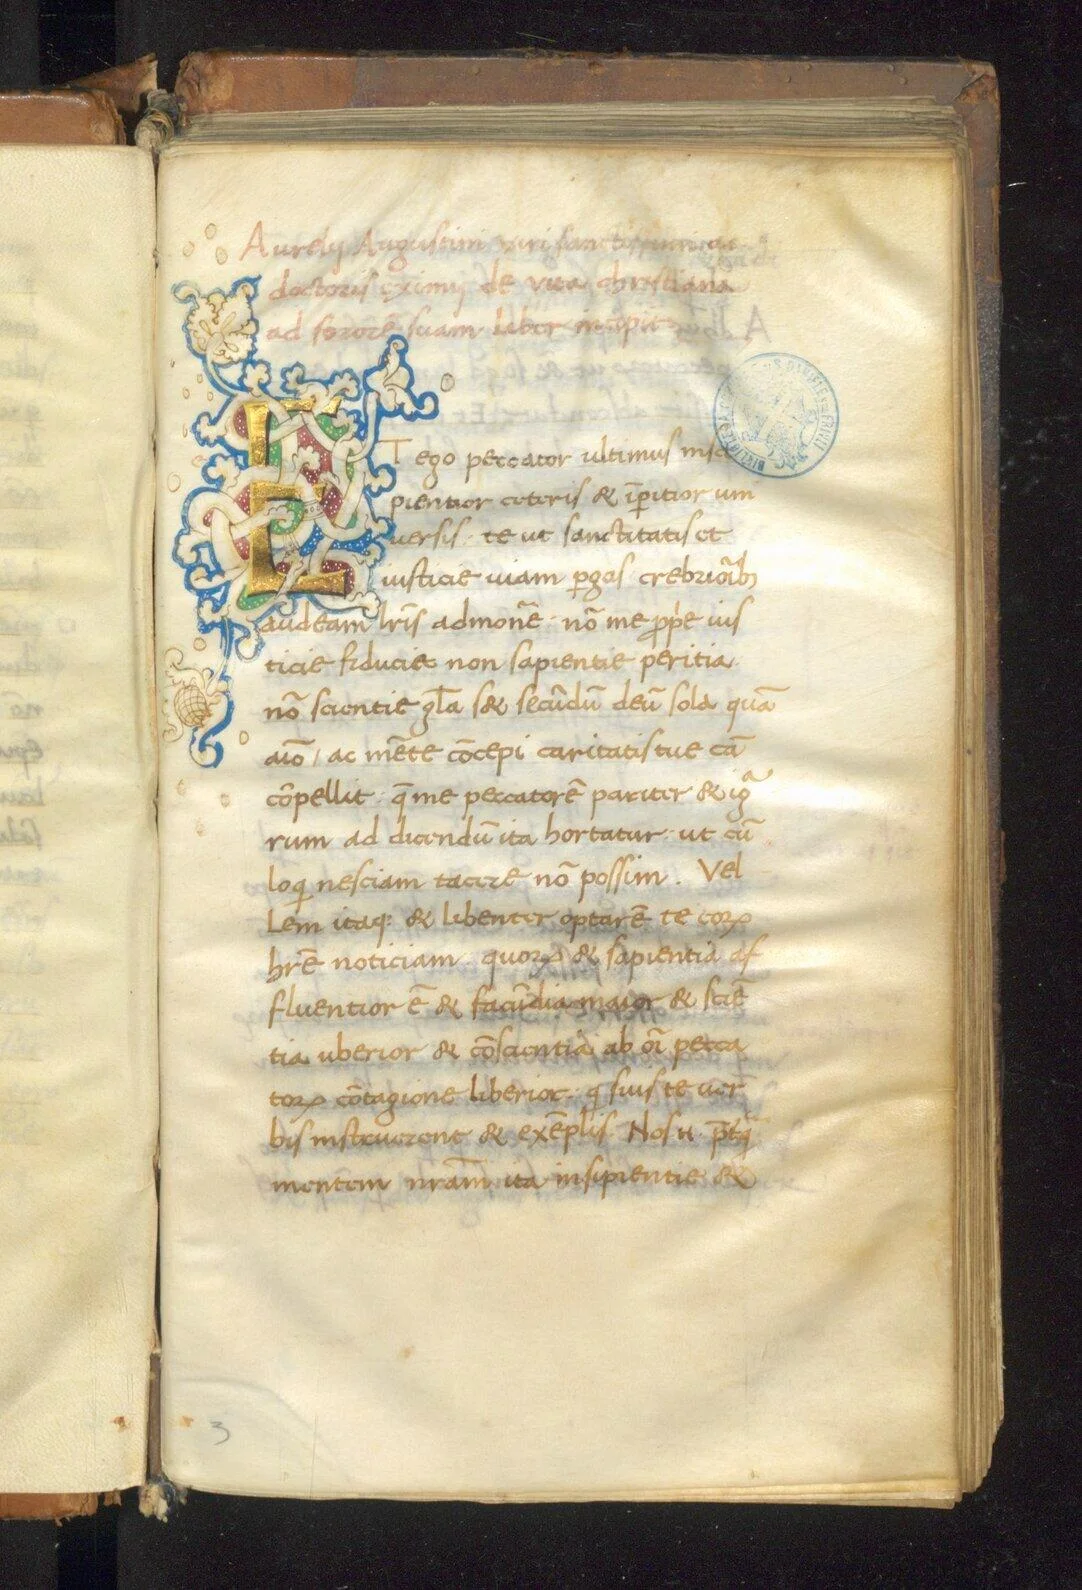 Aurelij Augustini viri sanctissimi ac
doctoris eximij de vita christiana
ad sororē suam liber incipit
ET ego peccator ultimus insi
pientior ceteris & īperitior uni
uersis. te ut sanctitatis et
iusticie uiam pergas crebriorib
audeam lr̄is admonē. nō me prop̄e ius
ticie fiducie non sapientie peritia.
nō scientie gl̄a s& secūdū deū sola quā
aīo / ac mēte cōcepi caritatis tue cā
cōpellit. q̄ me peccatorē pariter & iḡ
rum ad dicendū ita hortatur. ut cū
loqi nesciam tacere nō possim. Vel
lem itaq: & libenter optarē te eoꝝ
hr̄e noticiam. quoꝝ & sapientia af
fluentior ē & facūdia maior & sciē
tia uberior & cōscientia ab oī pecca
toꝝ cōtagione liberior. qi suis te uer
bis instruerent & exēplis. Nos
mentem nr̄am ita insipientie &
3